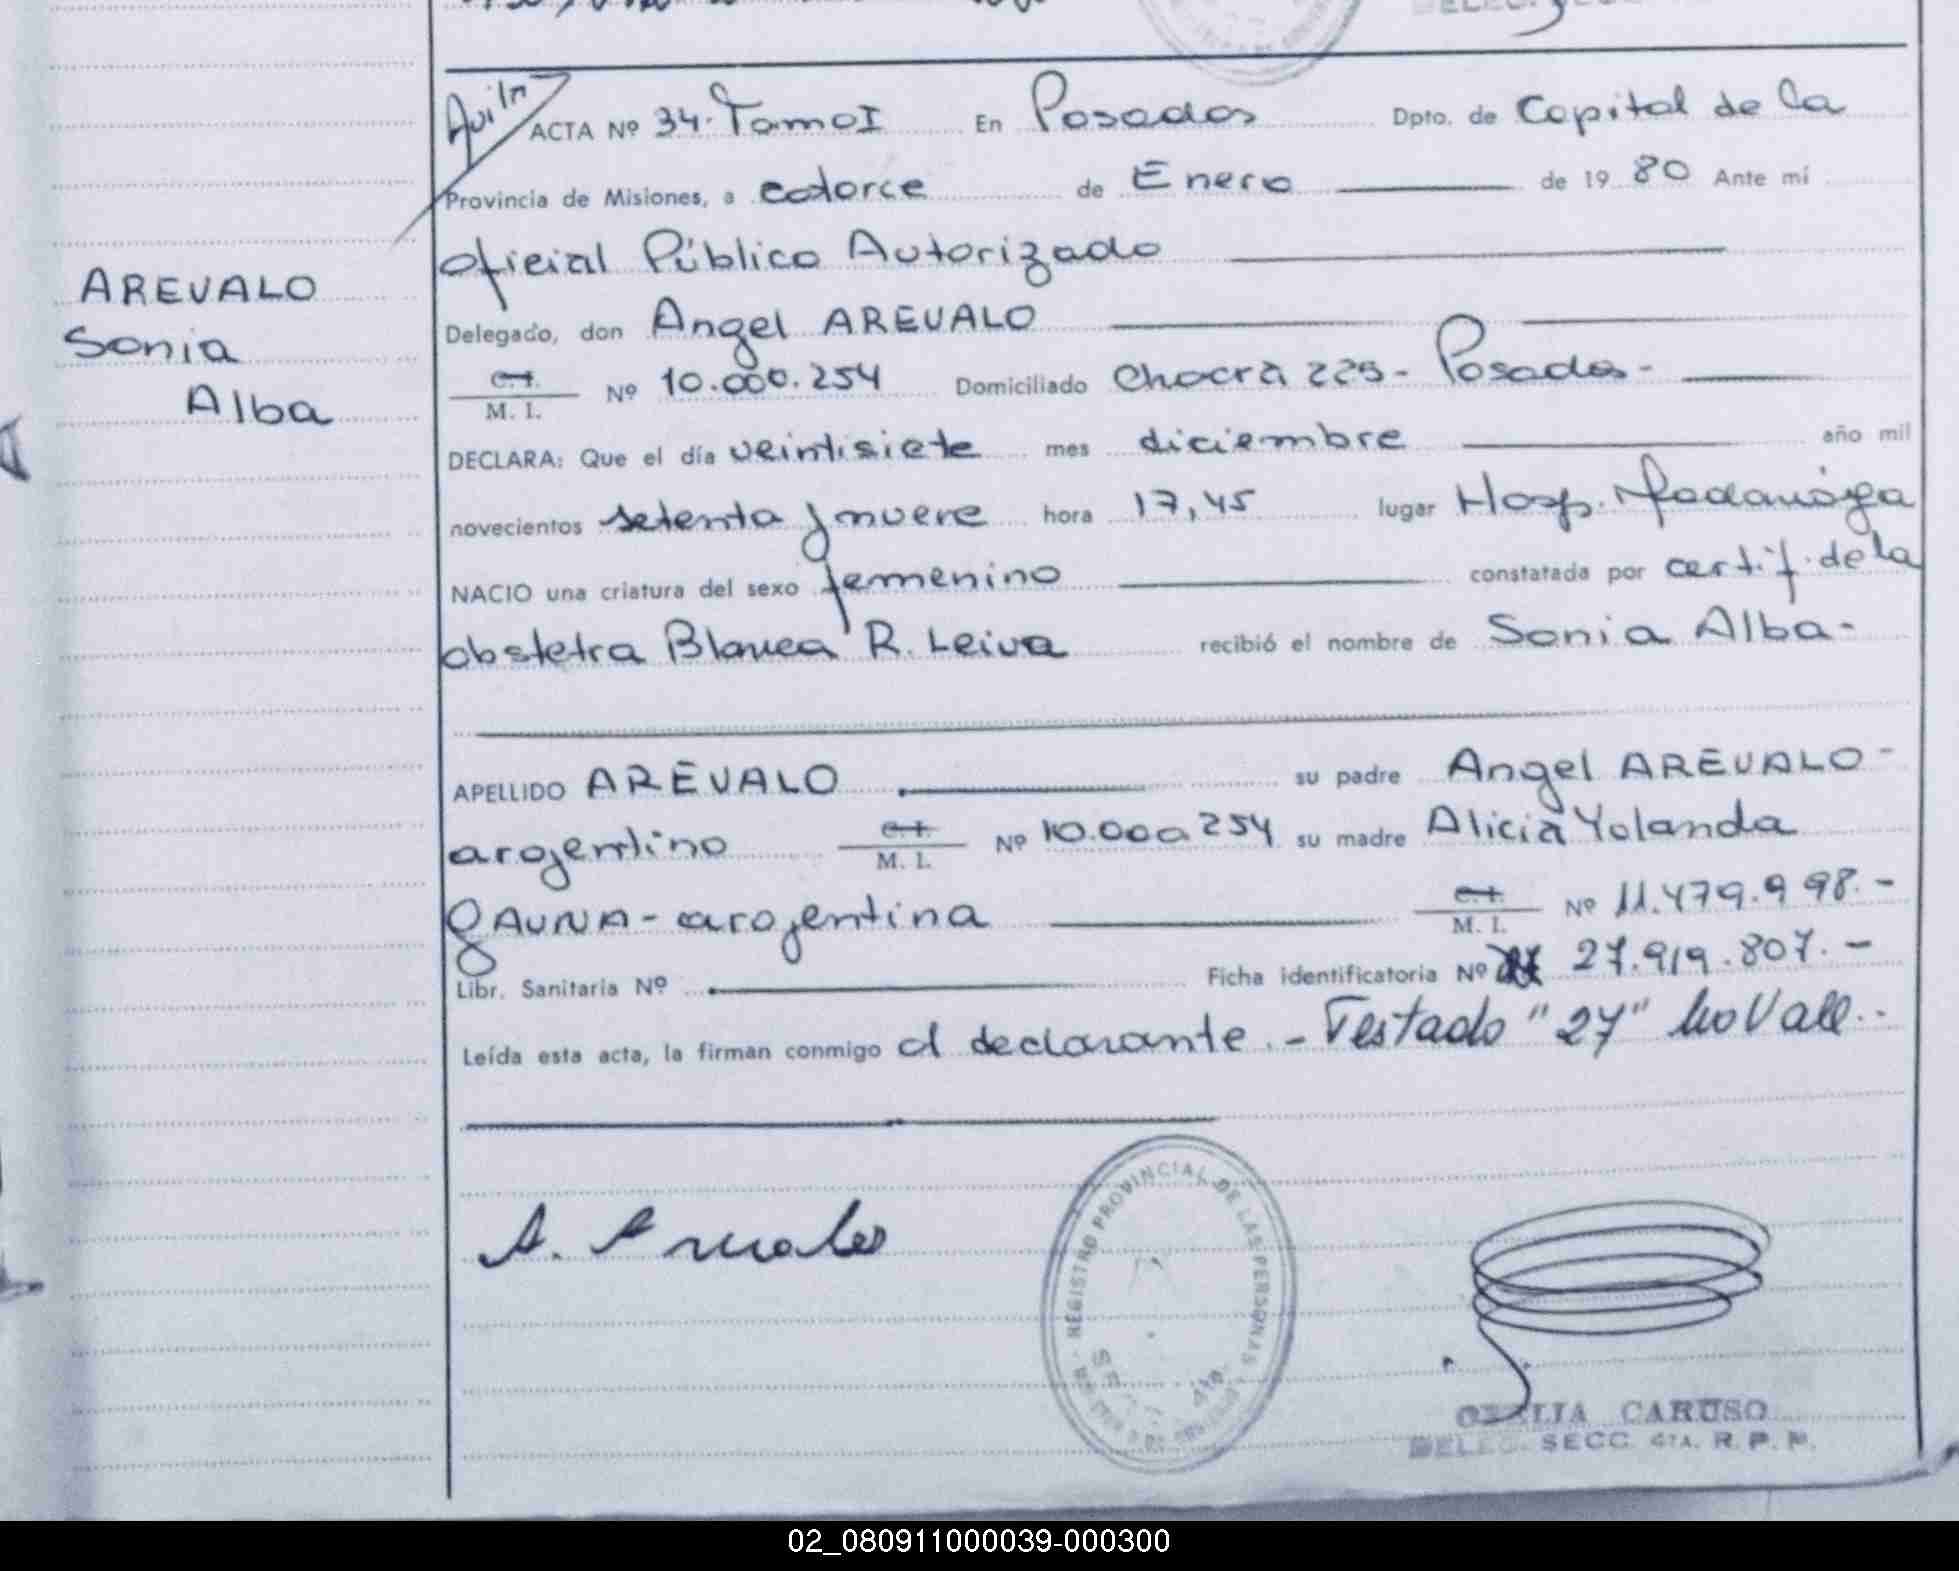 ACTA Nº 34. Tomo I En Posadas Dpto. de Capital de la
Provincia de Misiones, a catorce de Enero de 19 80 Ante mí
Oficial Público Autorizado
AREVALO
Sonia
Alba
Delegado, don Angel AREVALO
C. I.
M. I. Nº 10.000.254 Domiciliado Chacra 225 - Posadas -
DECLARA: Que el día veintisiete mes diciembre año mil
novecientos setenta y nueve hora 17,45 lugar Hosp. Madariaga
NACIO una criatura del sexo femenino constatada por certif. de la
obstetra Blanca R. Leiva recibió el nombre de Sonia Alba -
APELLIDO AREVALO su padre Angel AREVALO -
argentino C. I.
M. I. Nº 10.000254 su madre Alicia Yolanda
GAUNA - argentina C. I.
M. I. Nº 11.479.998. -
Libr. Sanitaria Nº Ficha identificatoria Nº 27.919.807. -
Leída esta acta, la firman conmigo el declarante. - Testado "27" No Vale. -
REGISTRO PROVINCIAL DE LAS PERSONAS
CARUSO
DELEG. SECC. 4TA. R. P. P.
02_080911000039-000300